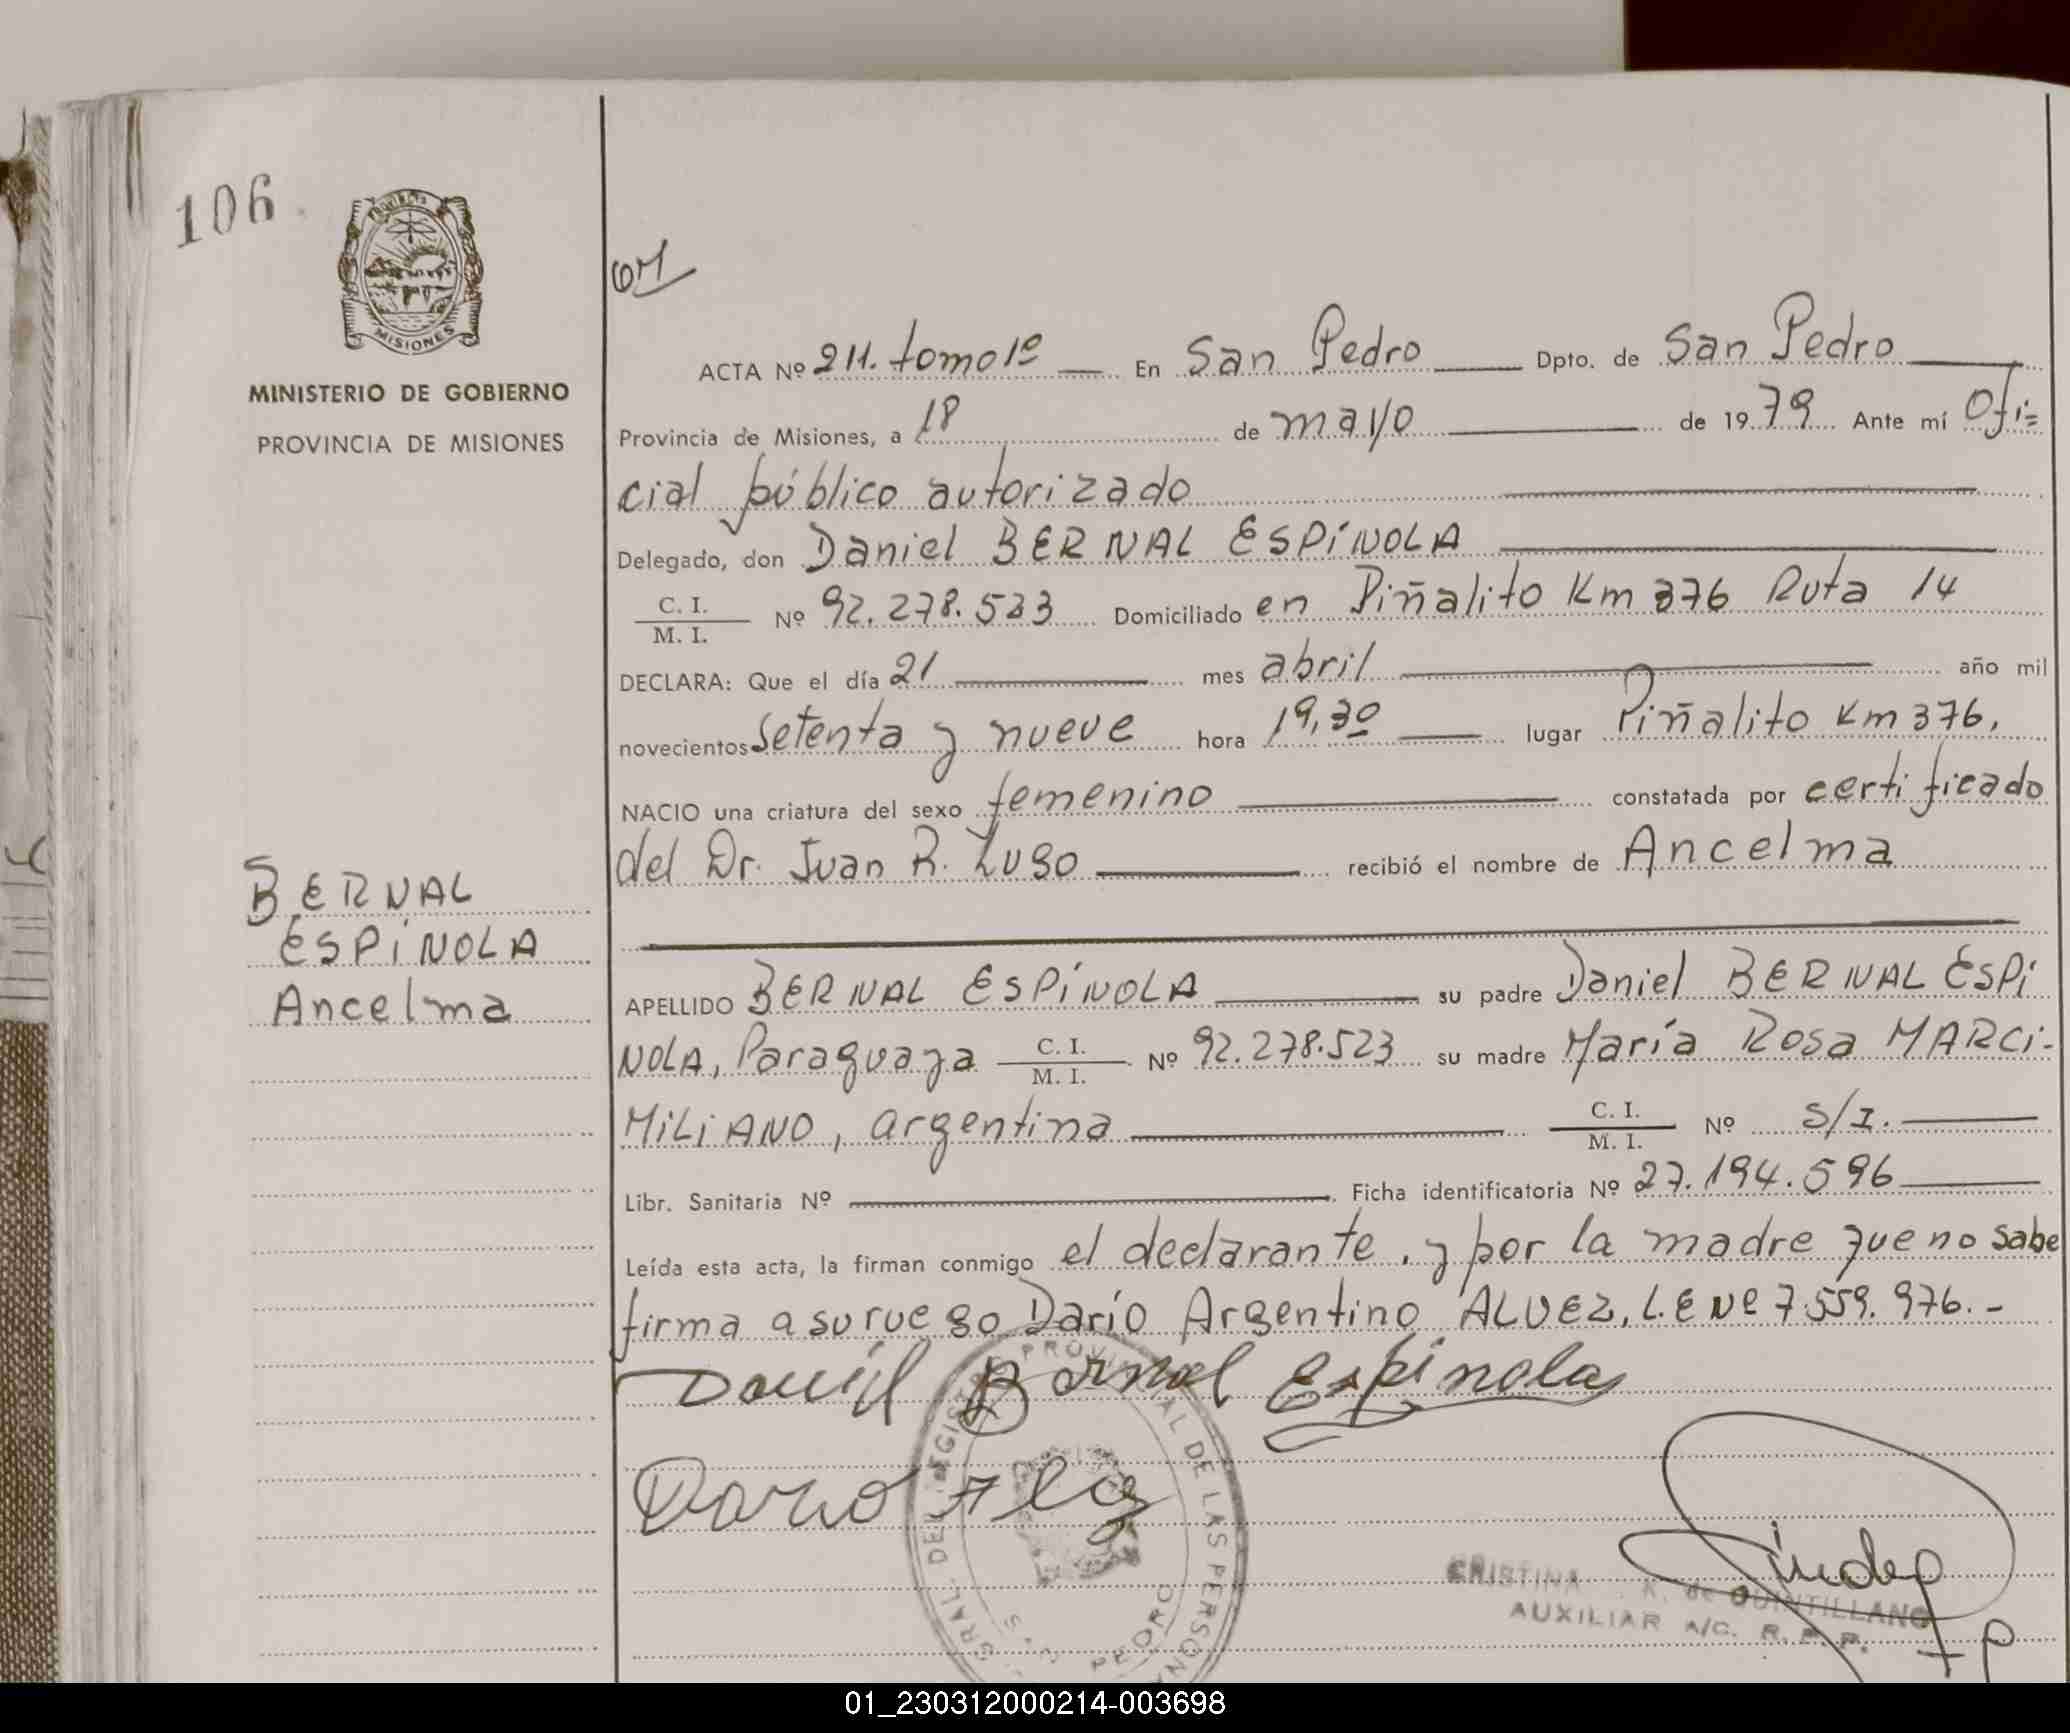 106
MISIONES
MINISTERIO DE GOBIERNO
PROVINCIA DE MISIONES
BERNAL
ESPÍNOLA
Ancelma
ACTA Nº 211. tomo 1º En San Pedro Dpto. de San Pedro
Provincia de Misiones, a 18 de mayo de 1979 Ante mí Ofi=
cial público autorizado
Delegado, don Daniel BERNAL ESPÍNOLA
C. I. / M. I. Nº 92.278.523 Domiciliado en Piñalito Km 376 Ruta 14
DECLARA: Que el día 21 mes abril año mil
novecientos setenta y nueve hora 19,30 lugar Piñalito Km 376,
NACIO una criatura del sexo femenino constatada por certificado
del Dr. Juan R. Lugo recibió el nombre de Ancelma
APELLIDO BERNAL ESPÍNOLA su padre Daniel BERNAL ESPI
NOLA, Paraguaya C. I. / M. I. Nº 92.278.523 su madre María Rosa MARCI-
MILIANO, argentina C. I. / M. I. Nº S/I.
Libr. Sanitaria Nº Ficha identificatoria Nº 27.194.596
Leída esta acta, la firman conmigo el declarante, y por la madre que no sabe
firma a su ruego Darío Argentino ALVEZ, L.E Nº 7.559.976.-
Daniel Bernal Espinola
Dario
PROVINCIAL DE LAS PERSONAS
PEDRO
CRISTINA K. de QUINTILLANO
AUXILIAR A/C. R. P. P.
01_230312000214-003698